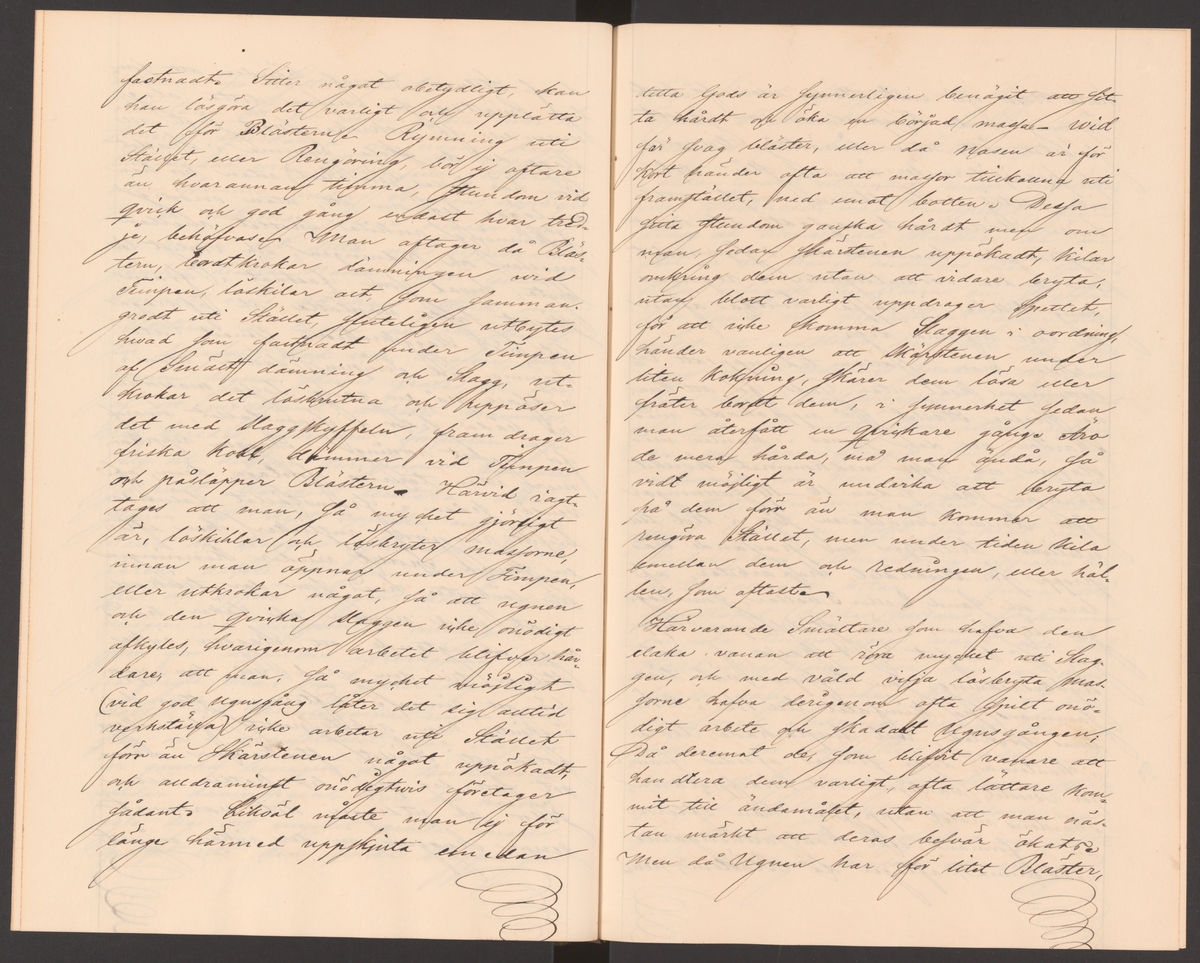 fastnadt. Sitter något obetydligt, kan
han lösgöra det varligt och upplätta
det för Blästern. Rymning uti
Stället, eller Rengöring, bör ej oftare
än hvarannan timma, stundom vid
qvick och god gång endast hvar tred-
je, behöfvas. Man aftager då Bläs-
tern, bortkrokar dämningen vid
Timpen, löskilar alt, som samman-
grodt uti Stället, sluteligen utbytes
hvad som fastnadt under Timpen
af Smält dämning och Slagg, ut-
krokar det lösbrutna och uppöser
det med Slaggskyffeln, fram drager
friska Kohl, dämmer vid Timpen
och påsläpper Blästern. Härvid iagt-
tages att man, så mycket görligt
är, löskihlar och lösbryter massorne,
innan man öppnar under Timpen,
eller utkrokar något, så att ugnen
och den qvicka Slaggen icke onödigt
afkyles, hvarigenom arbetet blifver hår-
dare, att man, så mycket möjligt
(vid god Ugnsgång låter det sig alltid
verkställa) icke arbetar uti Stället
förr än Skärstenen något uppökadt,
och alldraminst onödigtvis företager
sådant. Liksåt måste man ej för
länge härmed uppskjuta emedan
detta Gods är synnerligen benägit att sit-
ta hårdt och öka en börjad massa. Wid
för svag bläster, eller då Nasen är för
Kort händer ofta att massor tillkomma uti
framstället, ned emot botten. Dessa
sitta stundom ganska hårdt men om
man, sedan Skärstenen uppökadt, kilar
omkring dem utan att vidare bryta,
utan blott varligt uppdrager Spettet,
för att icke komma Slaggen i oordning,
händer vanligen att Skärstenen under
liten Kokning, skärer dem lösa eller
fräter bort dem, i synnerhet sedan
man återfått en qvickare gång. Äro
de mera hårda, må man ändå, så
vidt möjligt är undvika att bryta
på dem förr än man kommer att
rengöra Stället, men under tiden Kila
emellan dem och redningen, eller häl-
len, som oftast.
Härvarande Smältare som hafva den
elaka vanan att röra mycket uti Slag-
gen, och med våld vilja lösbryta mas-
sorne hafva derigenom ofta spillt onö-
digt arbete och skadat Ugnsgången;
Då deremot de, som blifvit vanare att
handtera dem varligt, ofta lättare kom-
mit till ändamålet, utan att man näs-
tan märkt att deras besvär ökats.
Men då Ugnen har för litet Bläster,